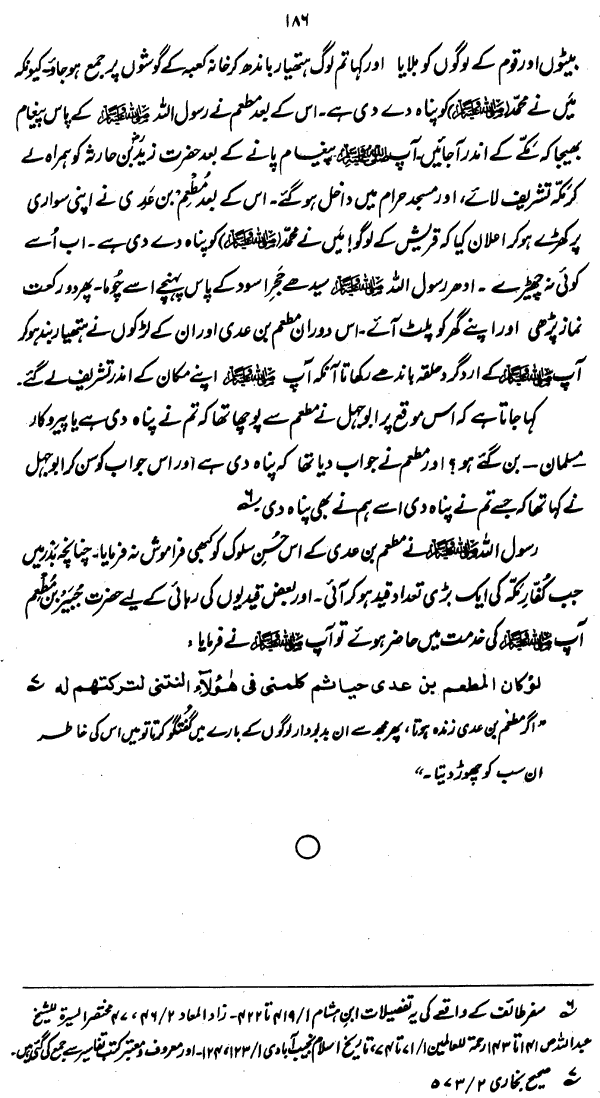 ۱۸۶
بیٹوں اور قوم کے لوگوں کو بلایا اور کہا تم لوگ ہتھیار باندھ کر خانہ کعبہ کے گوشوں پر جمع ہو جاؤ۔ کیونکہ
مَیں نے محمّد (ﷺ) کو پناہ دے دی ہے۔ اس کے بعد مطعم نے رسول اللہ ﷺ کے پاس پیغام
بھیجا کہ مَکّے کے اندر آجائیں، آپ ﷺ پیغام پانے کے بعد حضرت زیدؓ بن حارثہ کو ہمراہ لے
کر مَکّہ تشریف لائے، اور مسجد حرام میں داخل ہو گئے۔ اس کے بعد مُطْعِم بن عَدِی نے اپنی سواری
پر کھڑے ہو کر اعلان کیا کہ قریش کے لوگو! مَیں نے محمّد (ﷺ) کو پناہ دے دی ہے۔ اب اُسے
کوئی نہ چھیڑے ۔ ادھر رسول اللہ ﷺ سیدھے حَجرِ اسود کے پاس پہنچے اسے چُوما۔ پھر دو رکعت
نماز پڑھی اور اپنے گھر کو پلٹ آئے۔ اس دوران مطعم بن عدی اور ان کے لڑکوں نے ہتھیار بند ہو کر
آپ ﷺ کے ارد گرد حلقہ باندھے رکھا تا آنکہ آپ ﷺ اپنے مکان کے اندر تشریف لے گئے۔
کہا جاتا ہے کہ اس موقع پر ابوجہل نے مطعم سے پوچھا تھا کہ تم نے پناہ دی ہے یا پیروکار
ـ مسلمان ـ بن گئے ہو؟ اور مطعم نے جواب دیا تھا کہ پناہ دی ہے اور اس جواب کو سن کر ابوجہل
نے کہا تھا کہ جسے تم نے پناہ دی اسے ہم نے بھی پناہ دی ۶
رسول اللہ ﷺ نے مطعم بن عدی کے اس حُسنِ سلوک کو کبھی فراموش نہ فرمایا۔ چنانچہ بَدْر میں
جب کُفّارِ مَکّہ کی ایک بڑی تعداد قید ہو کر آئی۔ اور بعض قیدیوں کی رہائی کے لیے حضرت جُبَیْر بن مُطْعِم
آپ ﷺ کی خدمت میں حاضر ہوئے تو آپ ﷺ نے فرمایا:
لو کان المطعم بن عدی حیا ثم کلمنی فی ھٰؤلآء النتنٰی لترکتھم له ۷
”اگر مطعم بن عدی زندہ ہوتا، پھر مجھ سے ان بدبودار لوگوں کے بارے میں گُفتگو کرتا تو میں اس کی خاطر
ان سب کو چھوڑ دیتا۔“
۶ سفر طائف کے واقعے کی یہ تفصیلات ابن ہشام ۱/۴۱۹ تا ۴۲۲۔ زاد المعاد ۲/۴۶، ۴۷ مختصر السیرۃ للشیخ
عبداللہ ص ۱۴۱ تا ۱۴۳ رحمۃ للعالمین ۱/۷۱ تا ۷۴، تاریخ اسلام نجیب آبادی ۱/۱۲۳، ۱۲۴۔ اور معروف و معتبر کتب تفاسیر سے جمع کی گئی ہیں۔
۷ صحیح بخاری ۲/۵۷۳